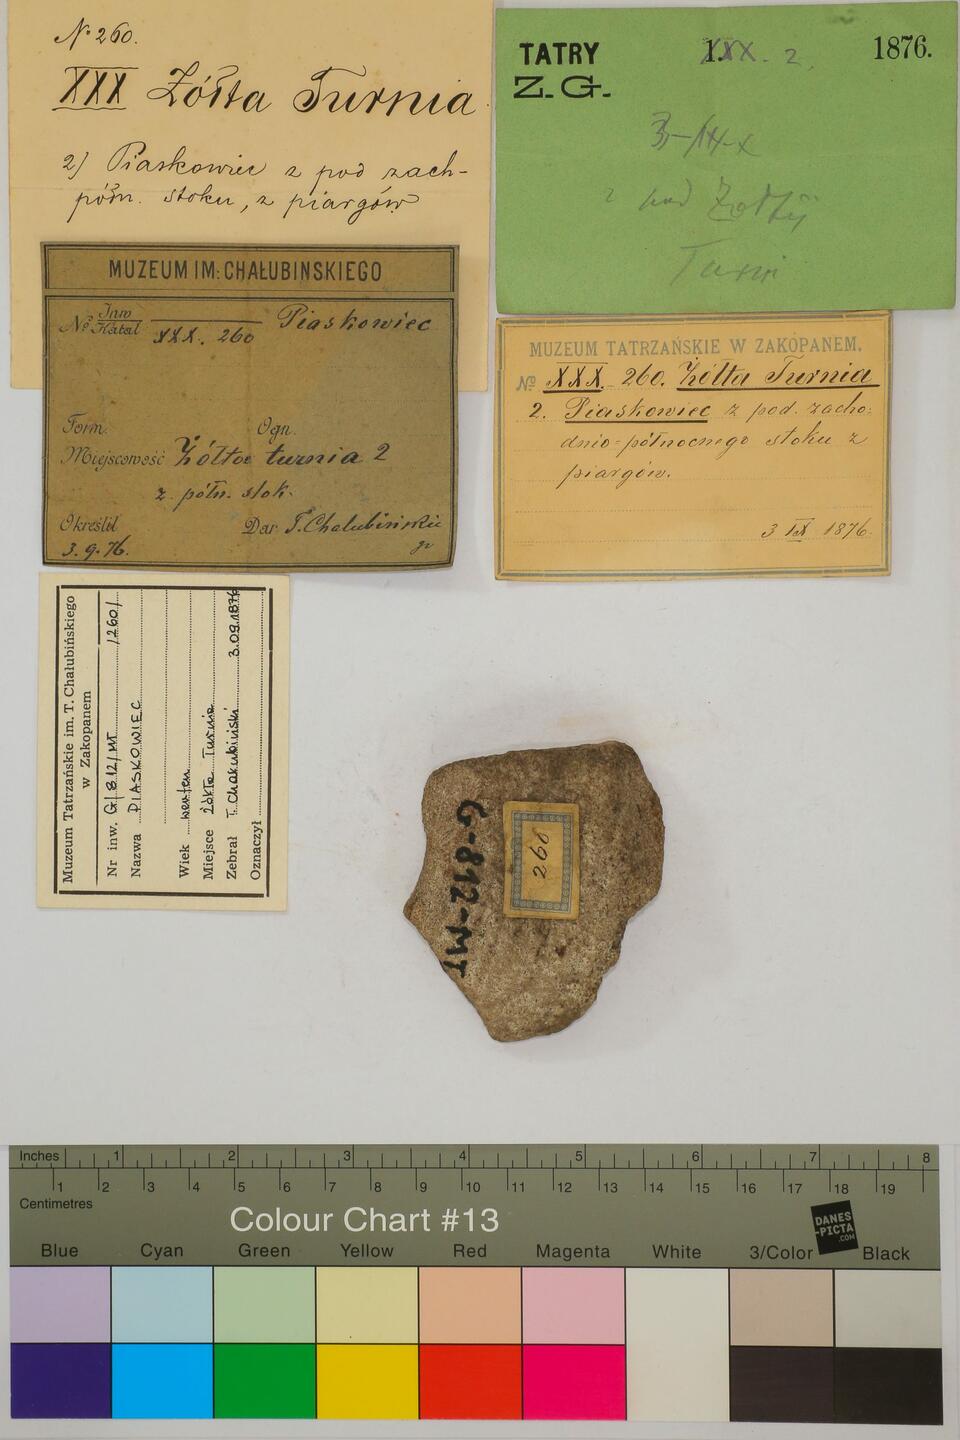 № 260.
XXX Żółta Turnia
2) Piaskowiec z pod zach-
półn. stoku, z piargów
TATRY XXX. 2. 1876.
Z. G.
z pod Żółtej
Turni
MUZEUM IM: CHAŁUBINSKIEGO
№ Inw
Katal XXX. 260 Piaskowiec
Form. Ogn.
Miejscowość Żółta turnia 2
z. półn. stok.
Określił Dar T. Chałubiński
3. 9. 76.
MUZEUM TATRZAŃSKIE W ZAKOPANEM.
№ XXX. 260. Żółta Turnia
2. Piaskowiec z pod. zacho-
dnio-północnego stoku z
piargów.
3 IX 1876.
Muzeum Tatrzańskie im. T. Chałubińskiego
w Zakopanem
Nr inw. G/812/MT /260/
Nazwa PIASKOWIEC
Wiek werfen
Miejsce Żółta Turnia
Zebrał T. Chałubiński 3.09.1876
Oznaczył
260
G-812-MT
Inches 1 2 3 4 5 6 7 8
1 2 3 4 5 6 7 8 9 10 11 12 13 14 15 16 17 18 19
Centimetres
Colour Chart #13
DANES
-PICTA
.COM
Blue Cyan Green Yellow Red Magenta White 3/Color Black